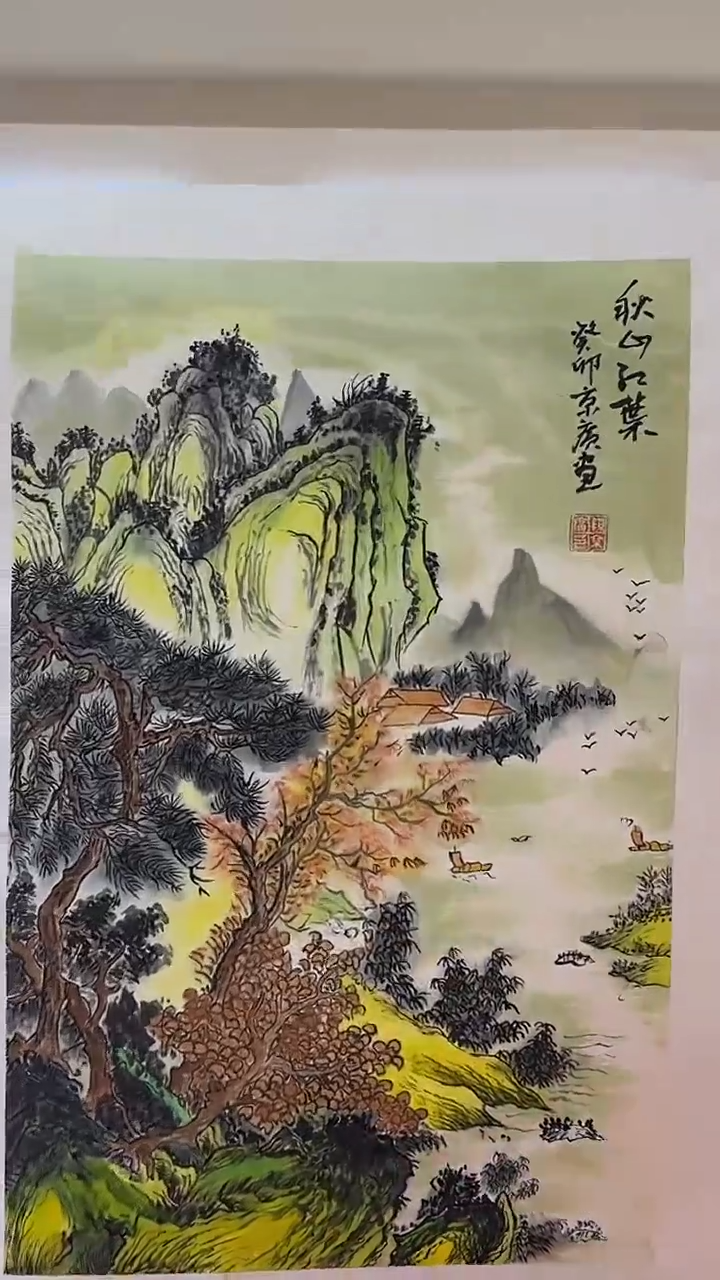 秋山红葉
癸卯京广画